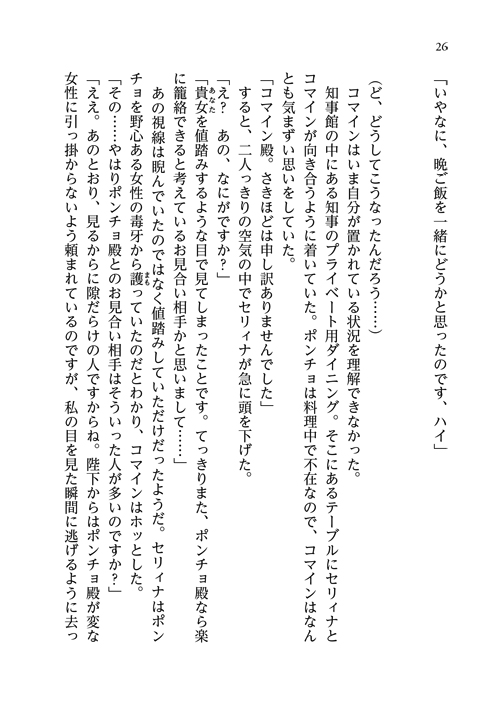 26
「いやなに、晩ご飯を一緒にどうかと思ったのです、ハイ」
(ど、どうしてこうなったんだろう……)
コマインはいま自分が置かれている状況を理解できなかった。
知事館の中にある知事のプライベート用ダイニング。そこにあるテーブルにセリィナと
コマインが向き合うように着いていた。ポンチョは料理中で不在なので、コマインはなん
とも気まずい思いをしていた。
「コマイン殿。さきほどは申し訳ありませんでした」
すると、二人っきりの空気の中でセリィナが急に頭を下げた。
「え? あの、なにがですか?」
「貴女を値踏みするような目で見てしまったことです。てっきりまた、ポンチョ殿なら楽
あなた
に籠絡できると考えているお見合い相手かと思いまして……」
あの視線は睨んでいたのではなく値踏みしていただけだったようだ。セリィナはポン
チョを野心ある女性の毒牙から護っていたのだとわかり、コマインはホッとした。
まも
「その……やはりポンチョ殿とのお見合い相手はそういった人が多いのですか?」
「ええ。あのとおり、見るからに隙だらけの人ですからね。陛下からはポンチョ殿が変な
女性に引っ掛からないよう頼まれているのですが、私の目を見た瞬間に逃げるように去っ